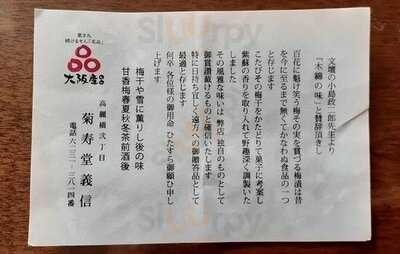 文壇の小島政二郎先生より
「木綿の味」と賛辞頂きし
百花に魁け笑う梅その実を賞づる梅漬は昔
を今に至るまで無くてかなわぬ食品の一つ
と存じます
こたびその梅干をかたどりて菓子に考案し
紫蘇の香りを取り入れて野趣深く調製いた
しました
その風雅な味いは 弊店 独自のものとして
御賞讃戴けるものと確信いたします
特に日持ち宜しく遠方への御贈答品として
最適と存じます
何卒 各位様の御用命 ひたすら御願ひ申し
上げます
梅干や雪に薫りし後の味
甘香梅春夏秋冬茶前酒後
高麗橋弐丁目
菊寿堂義信
電話六二三一-三八一四番
大阪産
名品